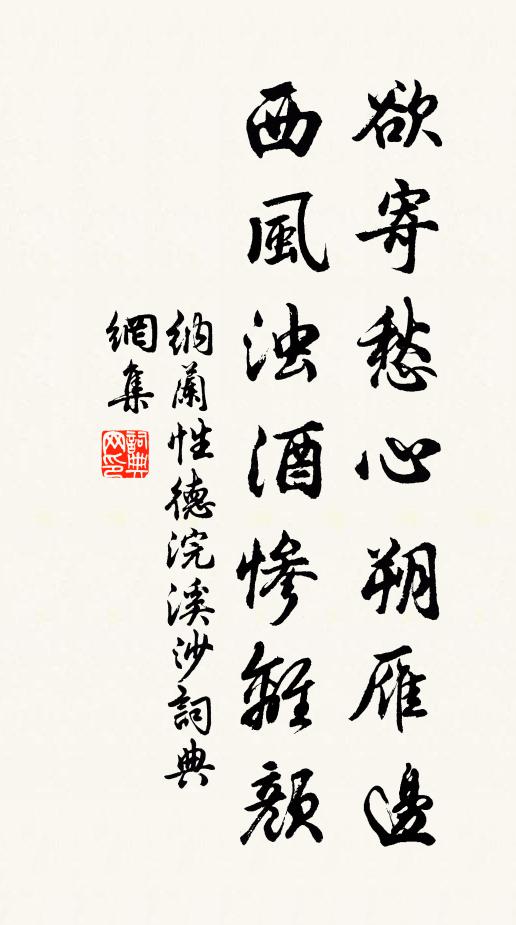 欲寄愁心朔雁邊
西風浊酒慘離顏
納蘭性德浣溪沙詞典
網集
詞典網印